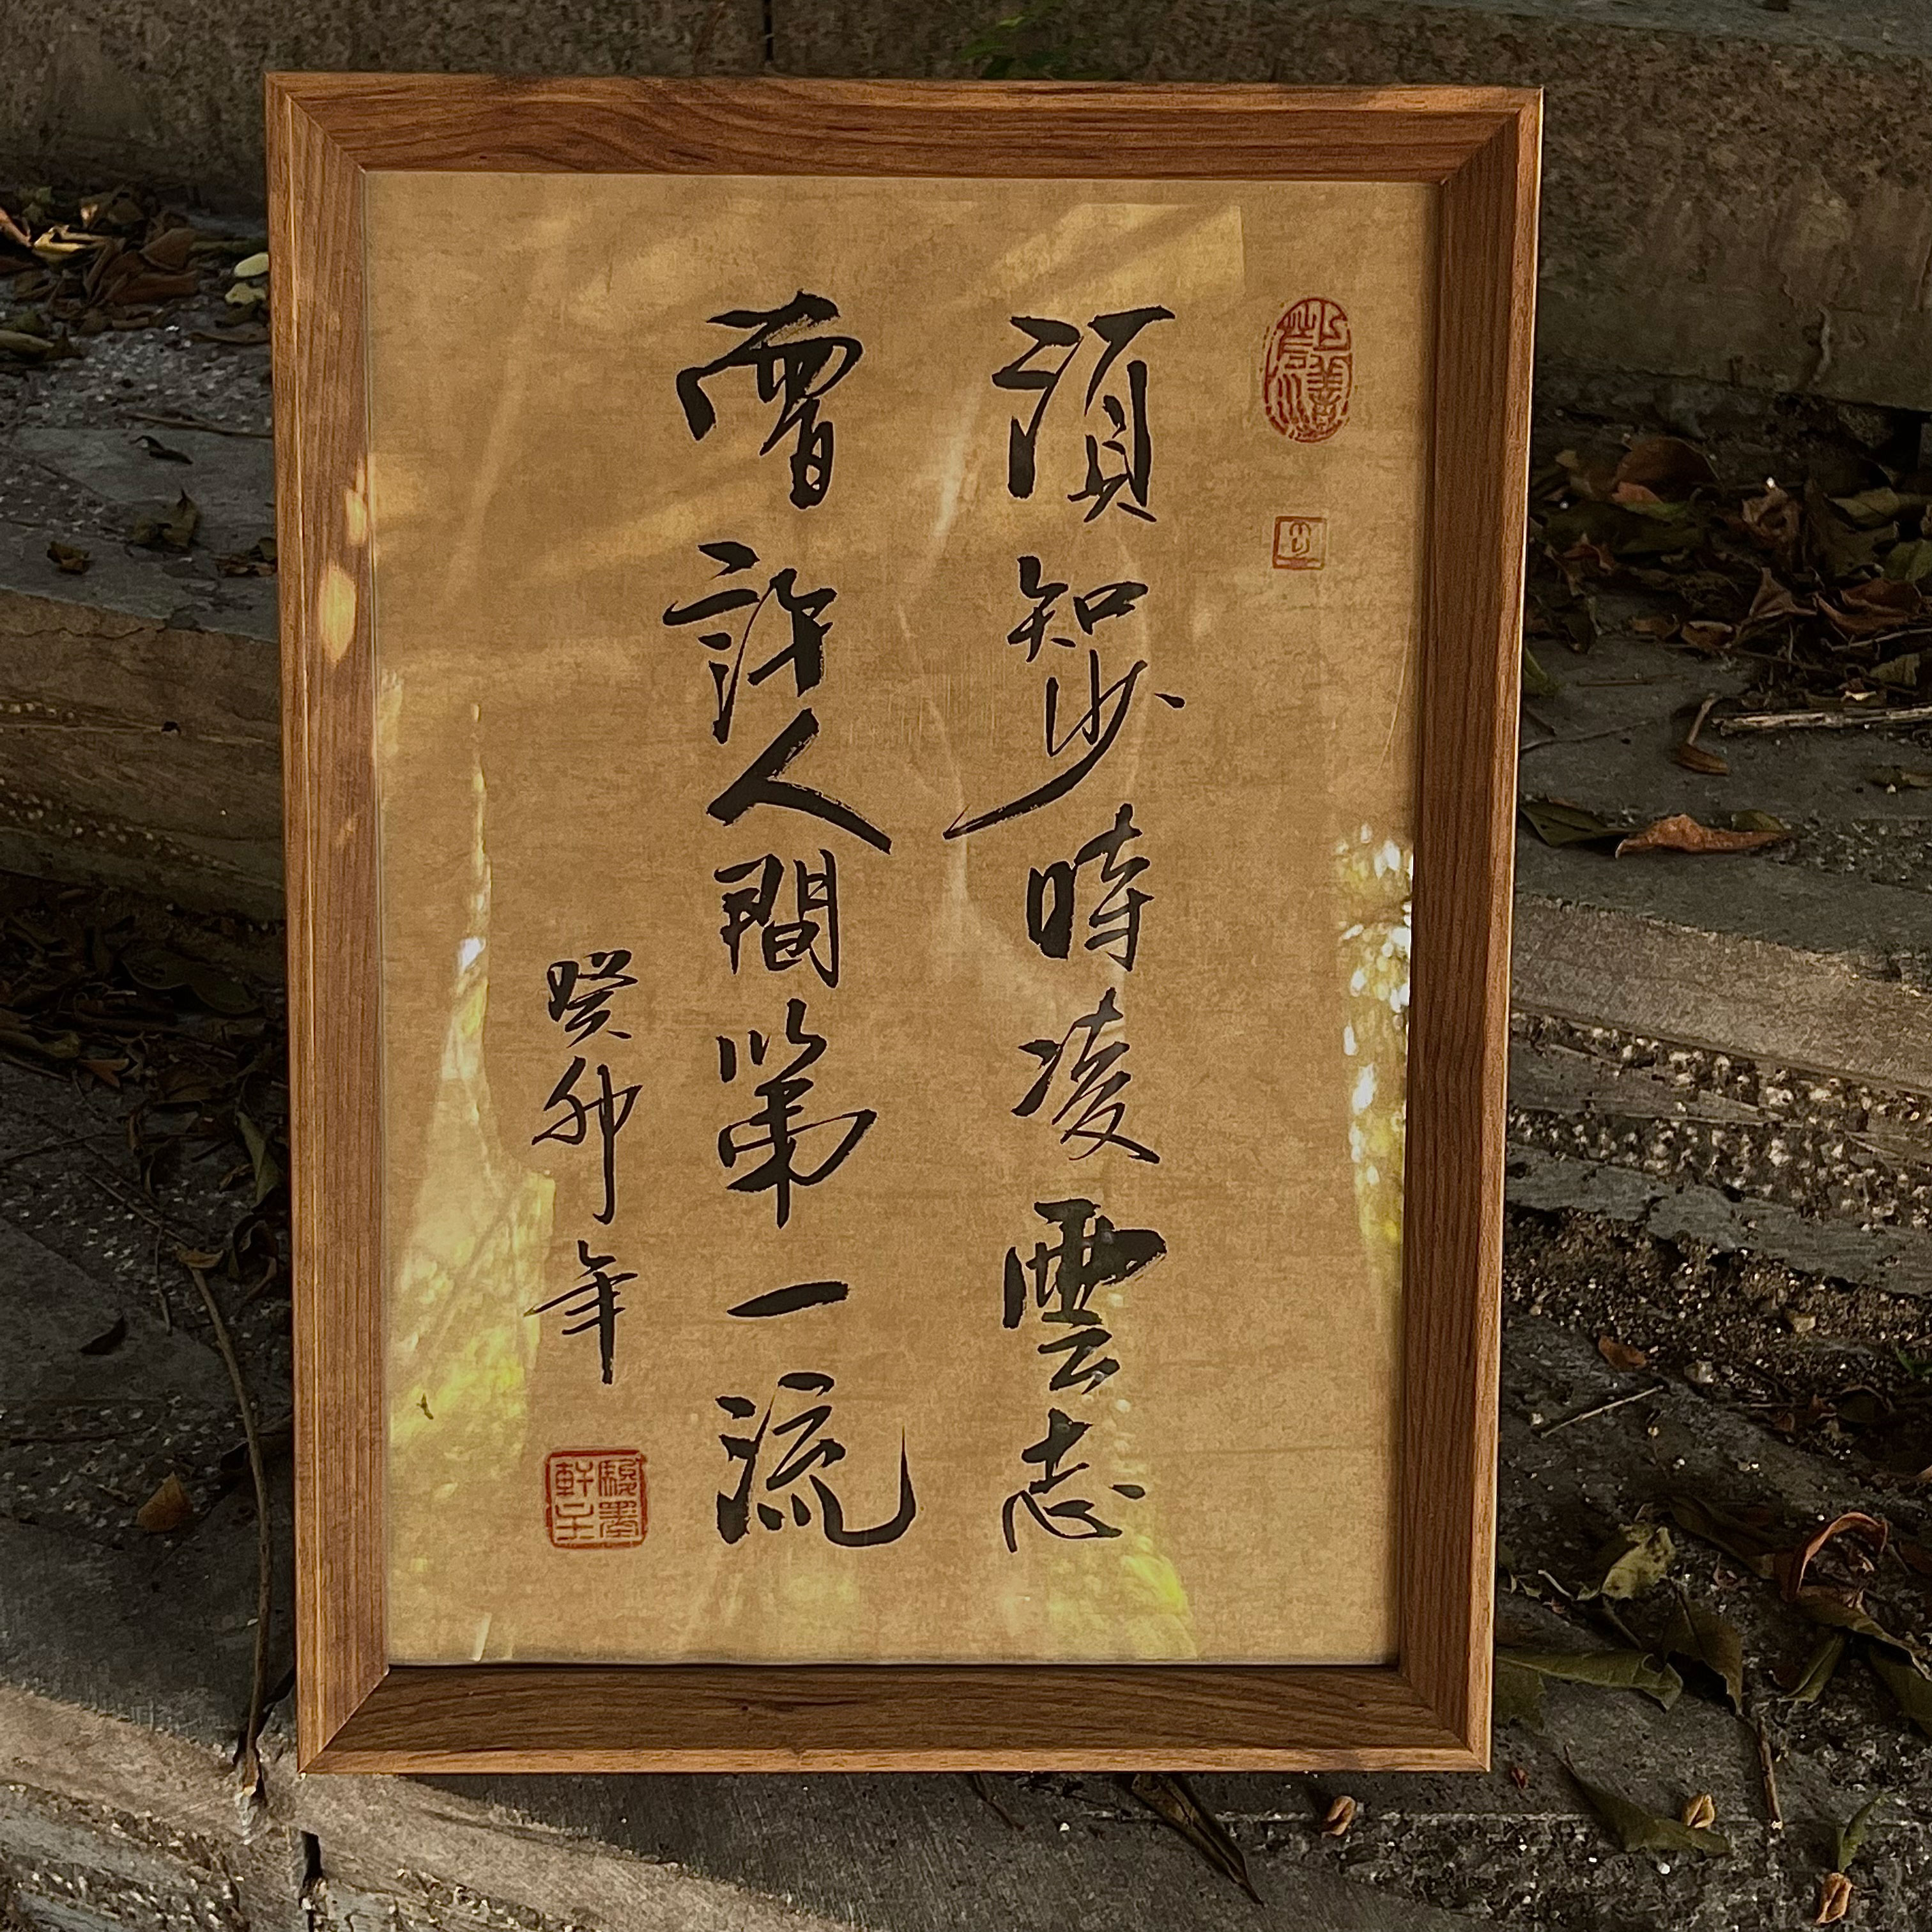 上善若水
須知少時凌雲志
曾許人間第一流
癸卯年
駿墨軒主